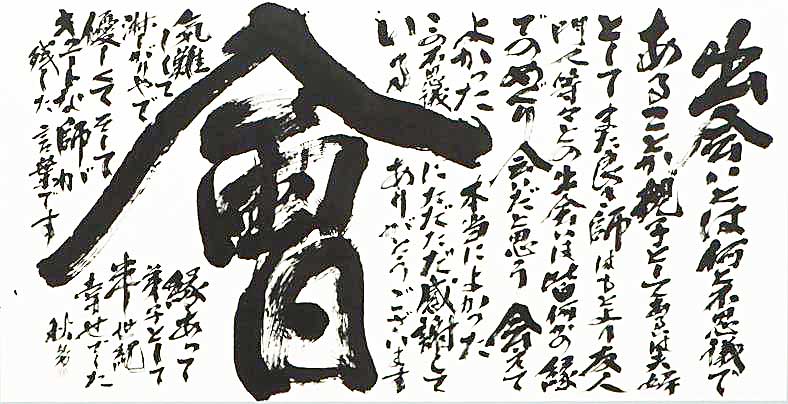 出会いとは何と不思議で
あることか親子としてあるいは夫婦
としてまた良き師はもとより友人
門人等々との出会いは皆何かの縁
でのめぐり会いだと思う 会えて
よかった 本当によかった
この不思議にただただ感謝して
いる ありがとうございます
會
気難しくて
淋しがりやで
優しくてそして
キュートな師が
残した言葉です
縁あって
弟子として
半世紀
幸せでした